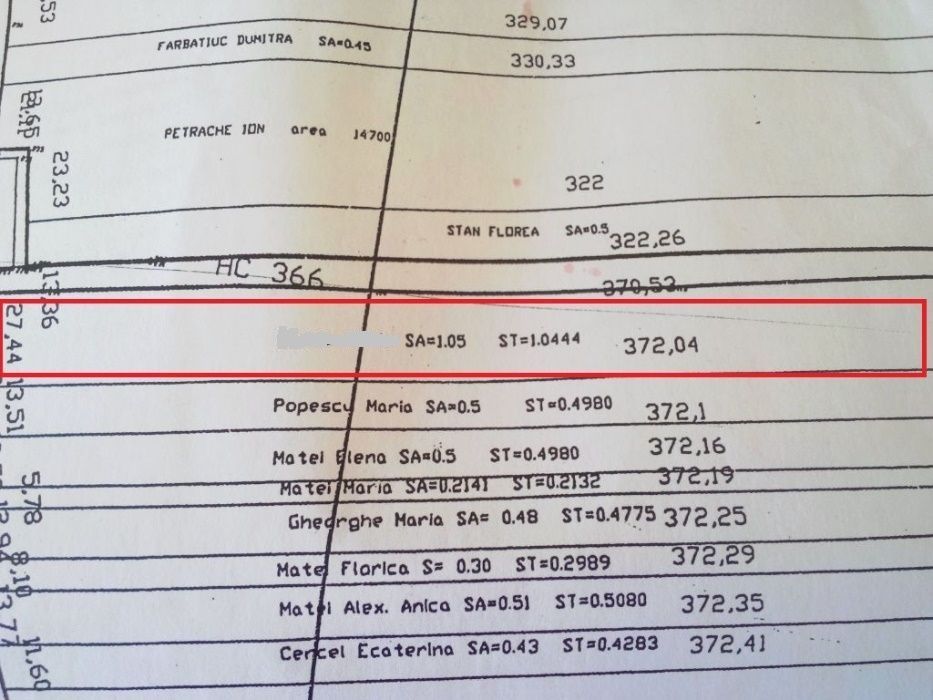 329,07
FARBATIUC DUMITRA SA=0.45
330,33
PETRACHE ION area 14700
23,23
322
STAN FLOREA SA=0.5 322,26
HC 366
13,36
370,53
27,44
SA=1.05 ST=1.0444 372,04
13,51
Popescu Maria SA=0.5 ST=0.4980 372,1
Matei Elena SA=0.5 ST=0.4980 372,16
Matei Maria SA=0.2141 ST=0.2132 372,19
5,78
Gheorghe Maria SA= 0.48 ST=0.4775 372,25
8,10
Matei Florica S= 0.30 ST=0.2989 372,29
Matei Alex. Anica SA=0.51 ST=0.5080 372,35
11,60
Cercel Ecaterina SA=0.43 ST=0.4283 372,41